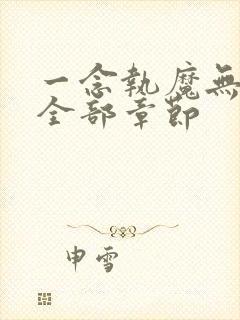 一念執魔無
全部章節
申雪